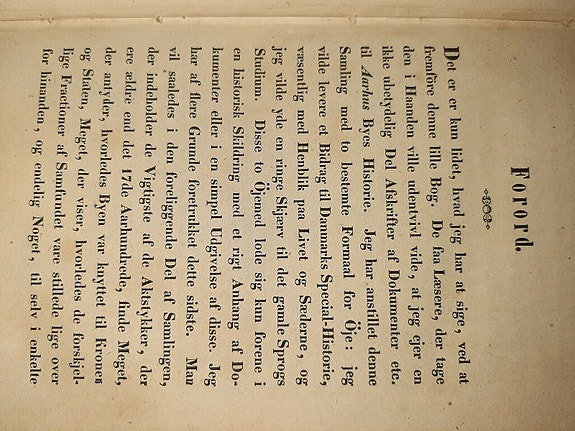 Forord.
Det er kun lidet, hvad jeg har at sige, ved at
fremføre denne lille Bog. De faa Læsere, der tage
den i Haanden ville udentvivl vide, at jeg ejer en
ikke ubetydelig Del Afskrifter af Dokumenter etc.
til Aarhus Byes Historie. Jeg har anstillet denne
Samling med to bestemte Formaal for Öje: jeg
vilde levere et Bidrag til Danmarks Special-Historie,
væsentlig med Henblik paa Livet og Sæderne, og
jeg vilde yde en ringe Skjærv til det gamle Sprogs
Studium. Disse to Öjemed lode sig kun forene i
en historisk Skildring med et rigt Anhang af Do-
kumenter eller i en simpel Udgivelse af disse. Jeg
har af flere Grunde foretrukket dette sidste. Man
vil saaledes i den foreliggende Del af Samlingen,
der indeholder de Vigtigste af de Aktstykker, der
ere ældre end det 17de Aarhundrede, finde Meget,
der antyder, hvorledes Byen var knyttet til Kronen
og Staten, Meget, der viser, hvorledes de forskjel-
lige Fractioner af Samfundet vare stillede lige over
for hinanden, og endelig Noget, til selv i enkelte